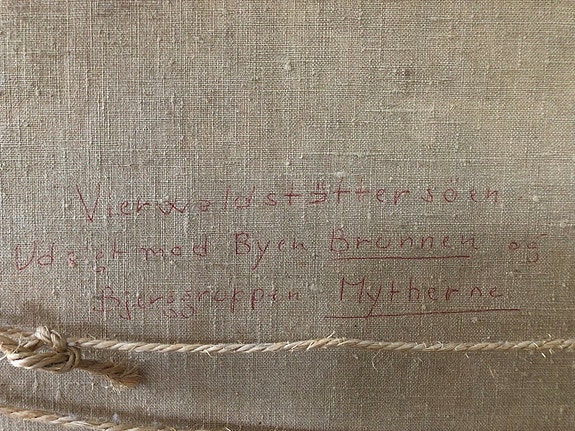 Vierwaldstättersöen
Udsigt mod Byen Brunnen og
Bjerggruppen Mytherne.